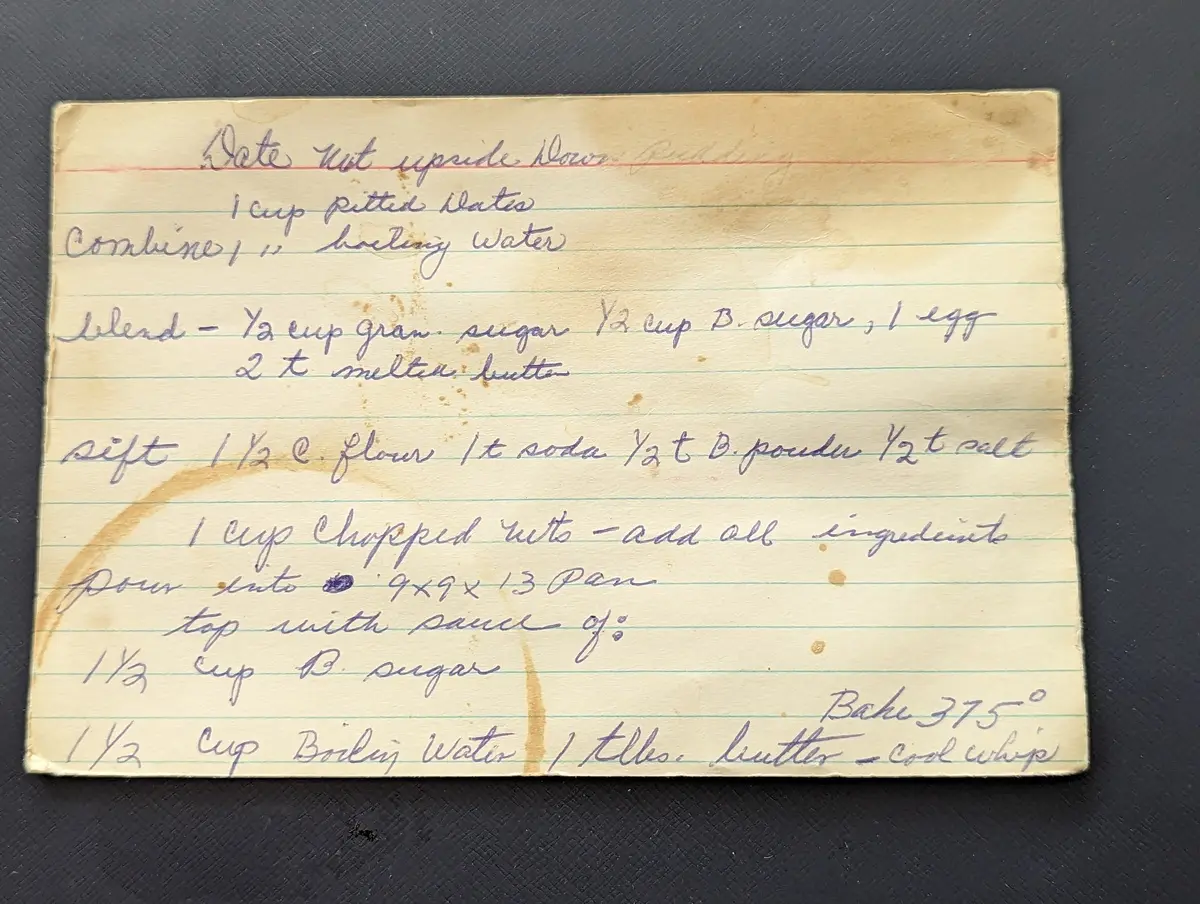 Date Nut upside Down Pudding
1 cup pitted Dates
Combine 1 " boiling Water
blend - 1/2 cup gran. sugar 1/2 cup B. sugar, 1 egg
2 t melted butter
sift 1 1/2 C. flour 1 t soda 1/2 t B. powder 1/2 t salt
1 cup Chopped nuts - add all ingredients
pour into 9x9x13 Pan
top with sauce of:
1 1/2 cup B. sugar
Bake 375°
1 1/2 cup Boiling Water 1 tlbs. butter - cool whip